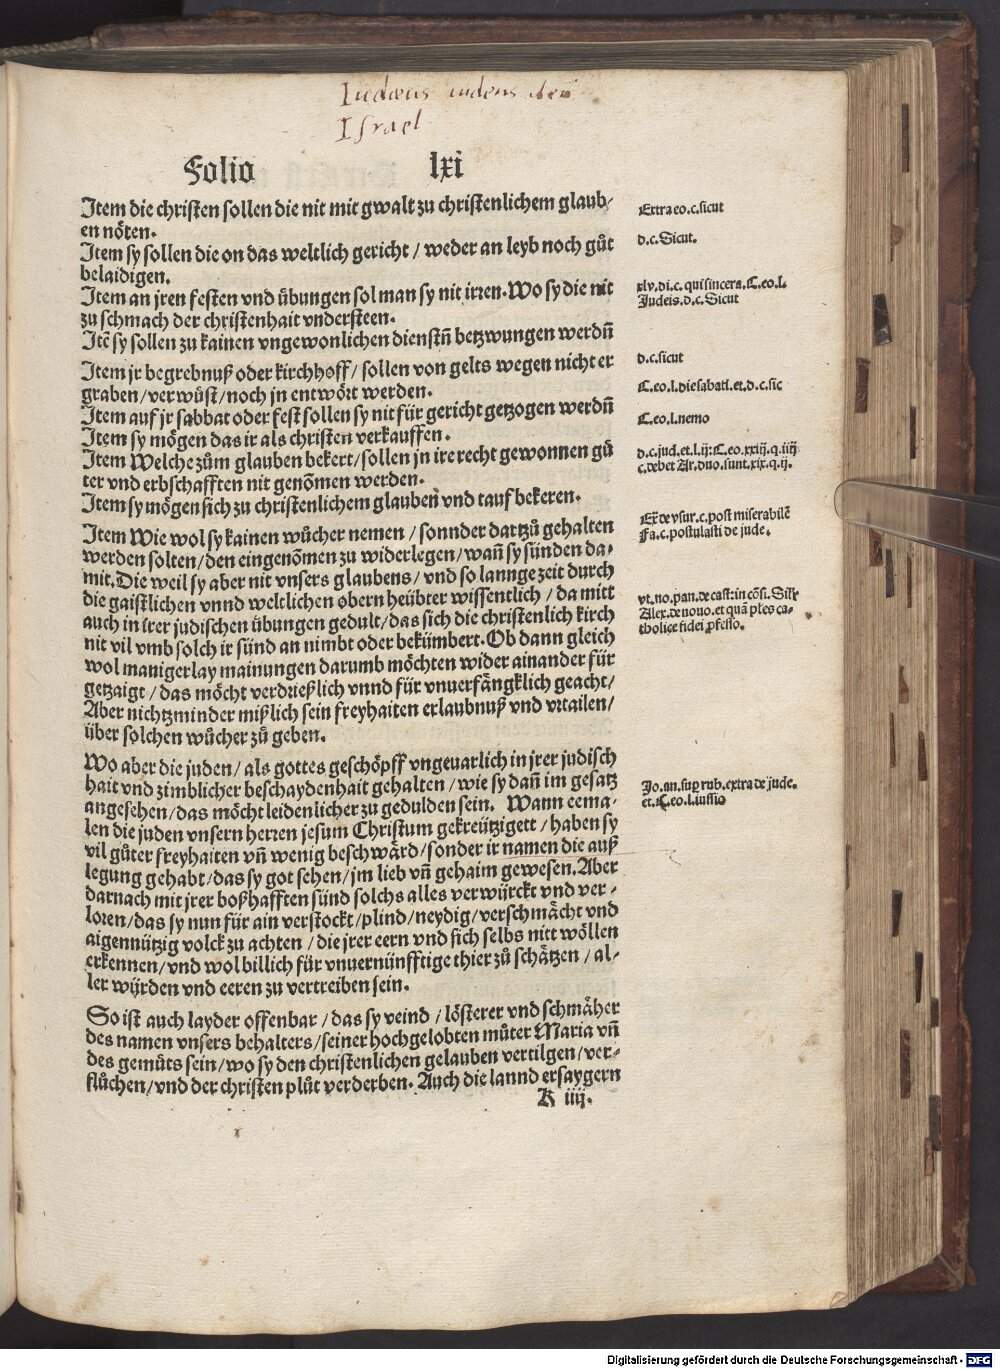 Iudæus iudens
Israel
Folio lxi
Item die christen sollen die nit mit gwalt zu christenlichem glaub/
en nöten.
Item sy sollen die on das weltlich gericht / weder an leyb noch gůt
belaidigen.
Item an jren festen vnd übungen sol man sy nit irren. Wo sy die nit
zu schmach der christenhait vndersteen.
Itẽ sy sollen zu kainen vngewonlichen dienstñ betzwungen werdñ
Item jr begrebnuß oder kirchhoff / sollen von gelts wegen nicht er
graben / verwüst / noch jn entwört werden.
Item auf jr sabbat oder fest sollen sy nit für gericht getzogen werdñ
Item sy mögen das ir als christen verkauffen.
Item Welche zům glauben bekert / sollen jn ire recht gewonnen gů
ter vnd erbschafften nit genõmen werden.
Item sy mögen sich zu christenlichem glauben vnd tauf bekeren.
Item Wie wol sy kainen wůcher nemen / sonnder dartzů gehalten
werden solten / den eingenõmen zu widerlegen / wañ sy sünden da-
mit. Die weil sy aber nit vnsers glaubens / vnd so lannge zeit durch
die gaistlichen vnnd weltlichen obern heübter wissentlich / da mitt
auch in irer judischen übungen gedult / das sich die christenlich kirch
nit vil vmb solch ir sünd an nimbt oder bekümbert. Ob dann gleich
wol manigerlay mainungen darumb möchten wider ainander für
getzaigt / das möcht verdrießlich vnnd für vnuerfängklich geacht /
Aber nichtzminder mißlich sein freyhaiten erlaubnuß vnd vrtailen /
über solchen wůcher zů geben.
Wo aber die juden / als gottes geschöpff vngeuarlich in jrer judisch
hait vnd zimblicher beschaydenhait gehalten / wie sy dañ im gesatz
angesehen / das möcht leidenlicher zu gedulden sein. Wann eema-
len die juden vnsern herren jesum Christum gekreützigett / haben sy
vil gůter freyhaiten vñ wenig beschwärd / sonder ir namen die auß
legung gehabt / das sy got sehen / jm lieb vñ gehaim gewesen. Aber
darnach mit jrer boßhafften sünd solchs alles verwürckt vnd ver-
loren / das sy nun für ain verstockt / plind / neydig / verschmächt vnd
aigennützig volck zu achten / die jrer eern vnd sich selbs nitt wöllen
erkennen / vnd wol billich für vnuernünfftige thier zů schätzen / al-
ler würden vnd eeren zu vertreiben sein.
So ist auch layder offenbar / das sy veind / lösterer vnd schmäher
des namen vnsers behalters / seiner hochgelobten můter Maria vñ
des gemůts sein / wo sy den christenlichen gelauben vertilgen / ver-
flůchen / vnd der christen plůt verderben. Auch die lannd ersaygern
K iiij.
Extra eo. c. sicut
d. c. Sicut.
xlv. di. c. qui sincera. C. eo. l.
Judeis. d. c. Sicut
d. c. sicut
C. eo. l. die sabati. et. d. c. sic
C. eo. l. nemo
d. c. jud. et. l. ij: C. eo. xxiij. q. iiij
c. debet Ar. duo. sunt. xix. q. ij.
Ex̃ de vsur. c. post miserabilẽ
Fa. c. postulasti de jude.
vt. no. pan. de cast: in cõsi. Silr
Alex. de nouo. et quã pleo ca-
tholice fidei ꝓfesso.
Jo. an. sup rub. extra de jude.
et. C. eo. l. iussio
Digitalisierung gefördert durch die Deutsche Forschungsgemeinschaft - DFG